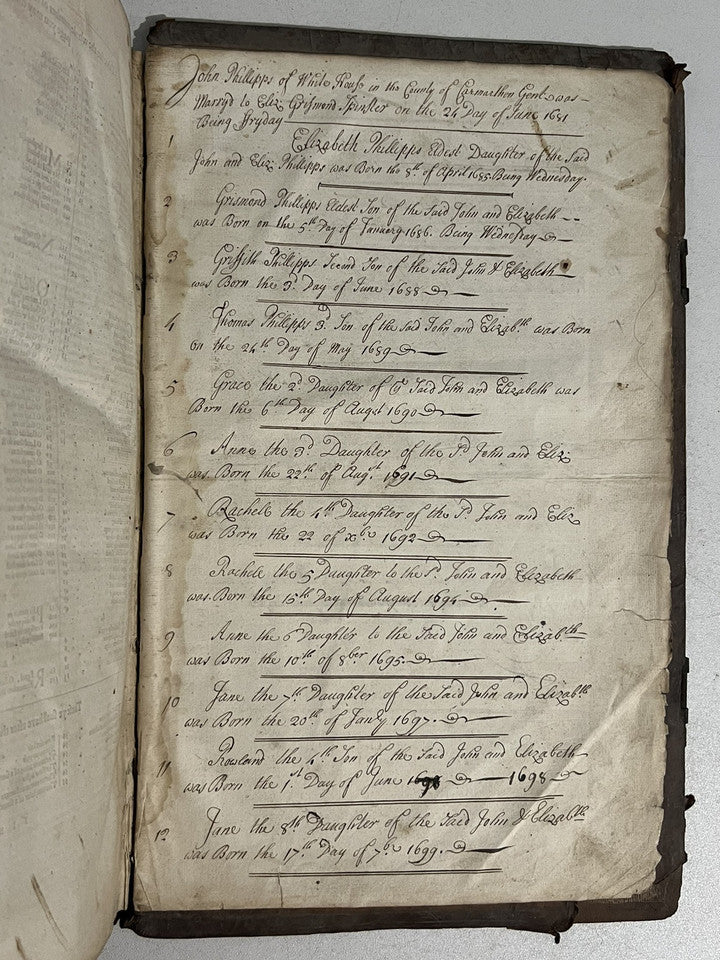 John Phillipps of White House in the County of Carmarthen Gent. was
Marryd to Eliz Grismond Spinster on the 24 Day of June 1681
Being Fryday
1 Elizabeth Phillipps Eldest Daughter of the Said
John and Eliz: Phillipps was Born the 8th of April 1685 Being Wednesday.
2 Grismond Phillipps Eldest Son of the Said John and Elizabeth
was Born on the 5th Day of January 1686. Being Wednesday
3 Griffith Phillipps Second Son of the Said John & Elizabeth
was Born the 3d Day of June 1688
4 Thomas Philipps 3d Son of the said John and Elizabth was Born
on the 24th Day of May 1689
5 Grace the 2d Daughter of ye Said John and Elizabeth was
Born the 6th Day of Augst 1690
6 Anne the 3d Daughter of the Sd John and Eliz:
was Born the 22th of Augst 1691
7 Rachele the 4th Daughter of the Sd John and Eliz
was Born the 22 of xbr 1692
8 Rachele the 5 Daughter to the Sd John and Elizabeth
was Born the 15th Day of August 1694
9 Anne the 6 Daughter to the Said John and Elizabth
was Born the 10th of 8ber 1695
10 Jane the 7th Daughter of the Said John and Elizabth
was Born the 20th of Janry 1697
11 Rowland the 4th Son of the Said John and Elizabeth
was Born the 1st Day of June 1698 1698
12 Jane the 8th Daughter of the Said John & Elizabth
was Born the 17th Day of 7br 1699